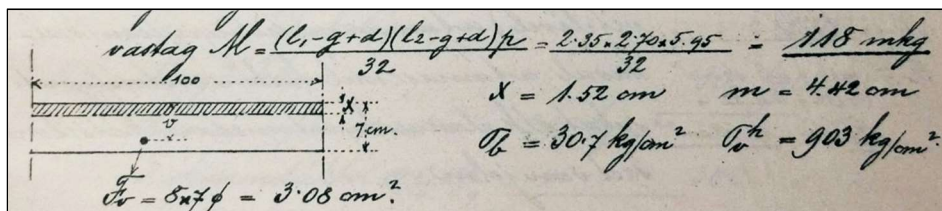 vastag M = (l₁-g+d)(l₂-g+d)p / 32 = 2·35×2·70×5·95 / 32 = 118 mkg
100
x = 1.52 cm m = 4.42 cm
x
v
7 cm.
σb = 30.7 kg/cm² σvh = 903 kg/cm²
Fv = 8×7 ϕ = 3·08 cm².